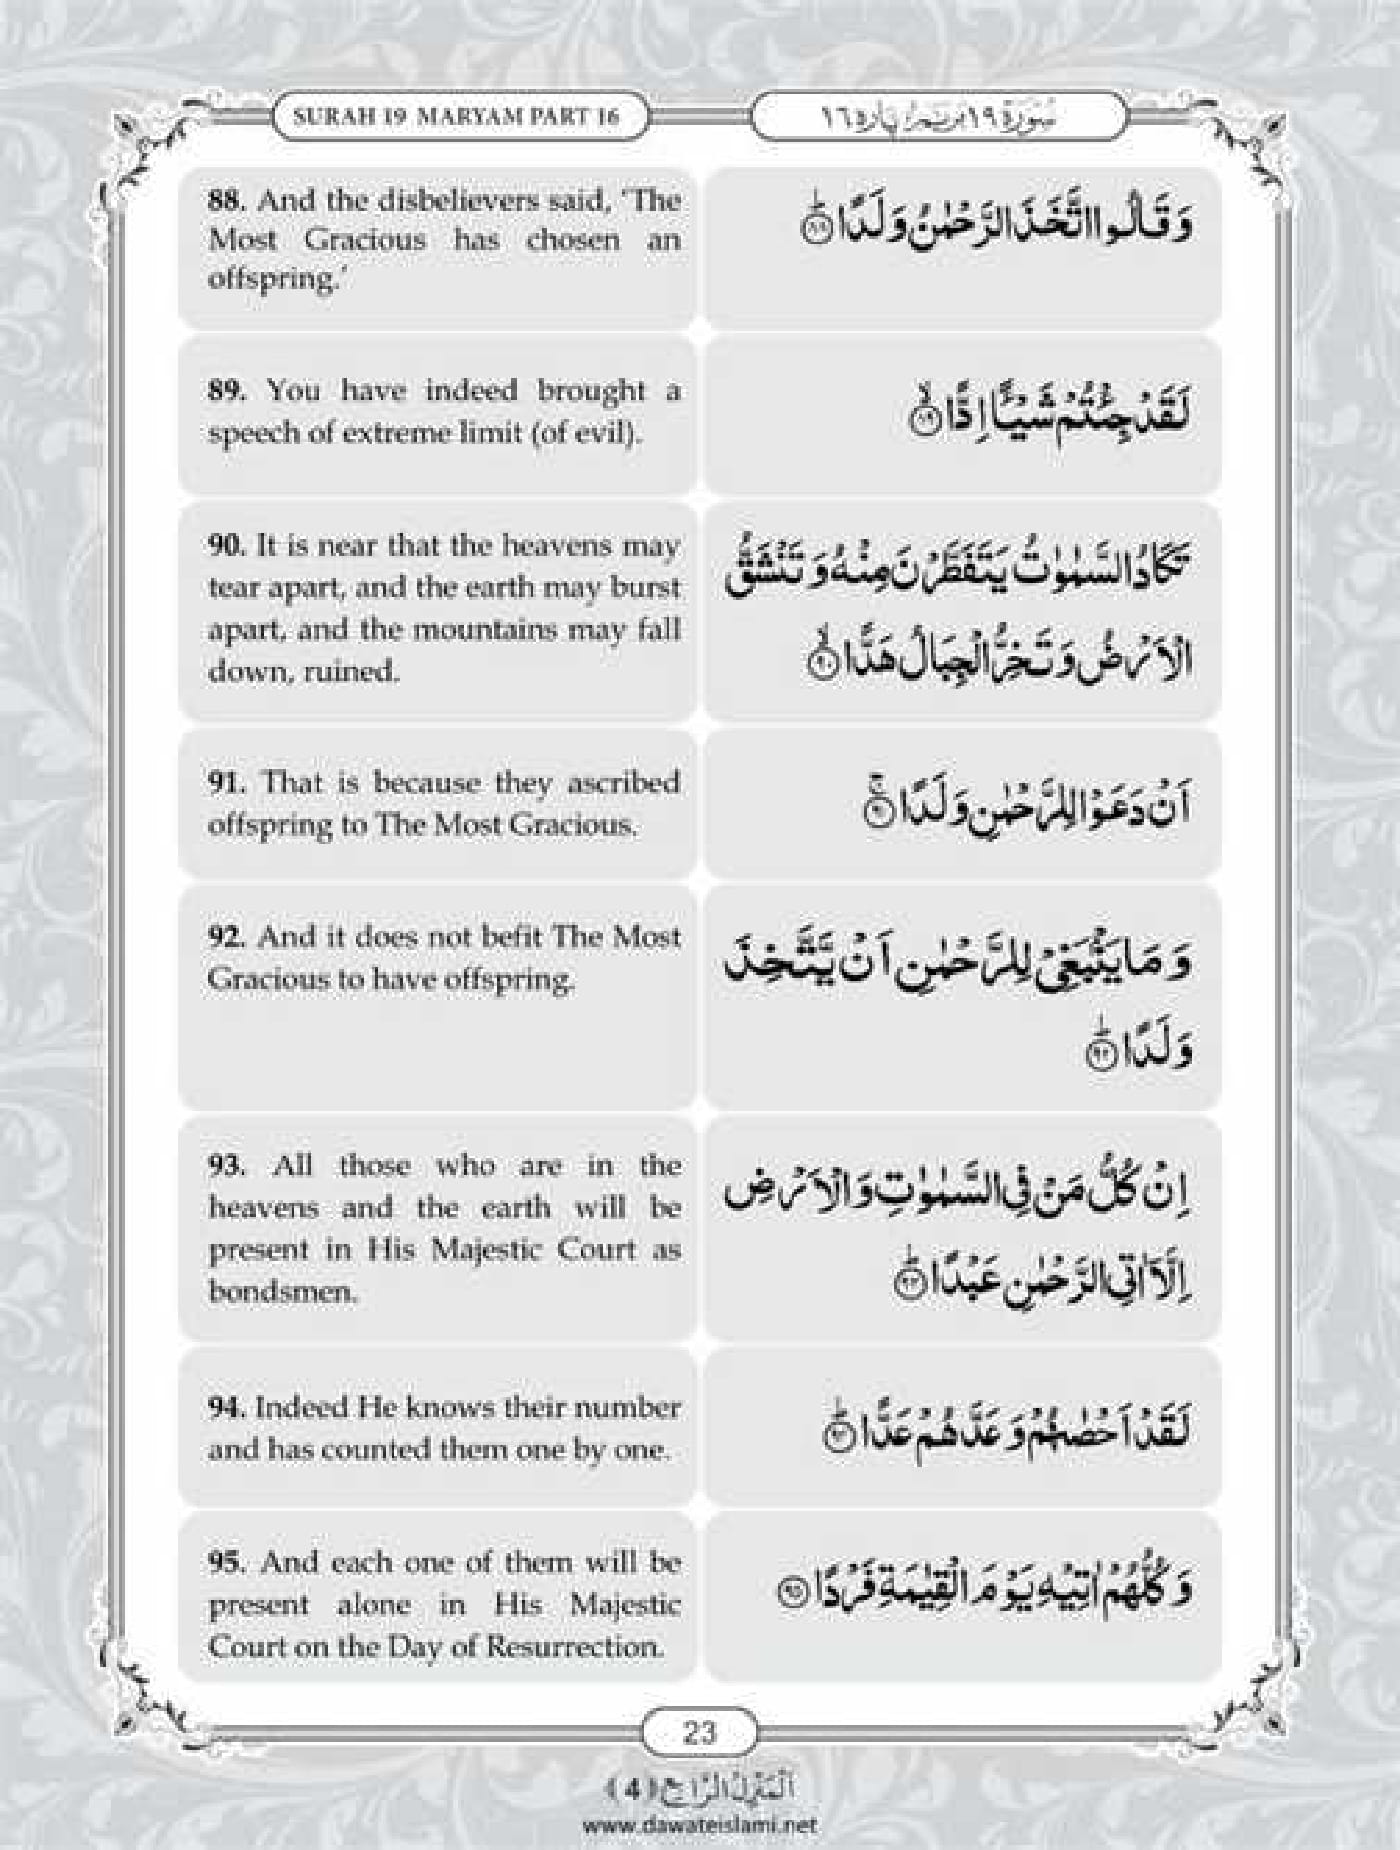 SURAH 19 MARYAM PART 16
سُوْرَةُ ١٩ مَرْيَم، پاره ١٦
88. And the disbelievers said, ‘The
Most Gracious has chosen an
offspring.’
وَقَالُوا اتَّخَذَ الرَّحْمٰنُ وَلَدًا ؕ﴿۸۸﴾
89. You have indeed brought a
speech of extreme limit (of evil).
لَقَدْ جِئْتُمْ شَيْـًٔا اِدًّا ۙ﴿۸۹﴾
90. It is near that the heavens may
tear apart, and the earth may burst
apart, and the mountains may fall
down, ruined.
تَكَادُ السَّمٰوٰتُ يَتَفَطَّرْنَ مِنْهُ وَ تَنْشَقُّ
الْاَرْضُ وَ تَخِرُّ الْجِبَالُ هَدًّا ۙ﴿۹۰﴾
91. That is because they ascribed
offspring to The Most Gracious.
اَنْ دَعَوْا لِلرَّحْمٰنِ وَلَدًا ۚ﴿۹۱﴾
92. And it does not befit The Most
Gracious to have offspring.
وَمَا يَنْۢبَغِیْ لِلرَّحْمٰنِ اَنْ يَّتَّخِذَ
وَلَدًا ؕ﴿۹۲﴾
93. All those who are in the
heavens and the earth will be
present in His Majestic Court as
bondsmen.
اِنْ كُلُّ مَنْ فِی السَّمٰوٰتِ وَالْاَرْضِ
اِلَّاۤ اٰتِی الرَّحْمٰنِ عَبْدًا ؕ﴿۹۳﴾
94. Indeed He knows their number
and has counted them one by one.
لَقَدْ اَحْصٰىهُمْ وَ عَدَّهُمْ عَدًّا ؕ﴿۹۴﴾
95. And each one of them will be
present alone in His Majestic
Court on the Day of Resurrection.
وَكُلُّهُمْ اٰتِيْهِ يَوْمَ الْقِيٰمَةِ فَرْدًا ﴿۹۵﴾
23
اَلْمَنْزِلُ الرَّابِع (4)
www.dawateislami.net